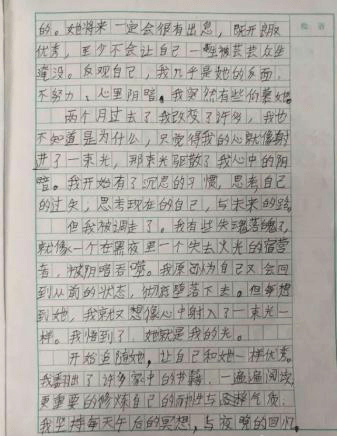 批语
的。她将来一定会很有出息，既开朗又
优秀，至少不会让自己一生被芸芸众生
淹没。反观自己，我几乎是她的反面，
不努力、心里阴暗。我突然有些仰慕她。
两个月过去了我改变了许多，我也
不知道是为什么，只觉得我的心就像射
进了一束光，那束光驱散了我心中的阴
暗。我开始有了沉思的习惯，思考自己
的过失，思考现在的自己，与未来的路。
但我被调走了。我有些失魂落魄了，
就像一个在黑夜里一个失去火光的宿营
者，被阴暗吞噬。我原以为自己又会回
到从前的状态，彻底堕落下去。但每想
到她，我就又想像心中射入了一束光一
样。我悟到了，她就是我的光。
开始追随她，让自己和她一样优秀。
我翻出了许多家中的书籍，一遍遍阅读，
更重要的修炼自己的耐性与品格气质，
我坚持每天午后的冥想，与夜晚的回忆，